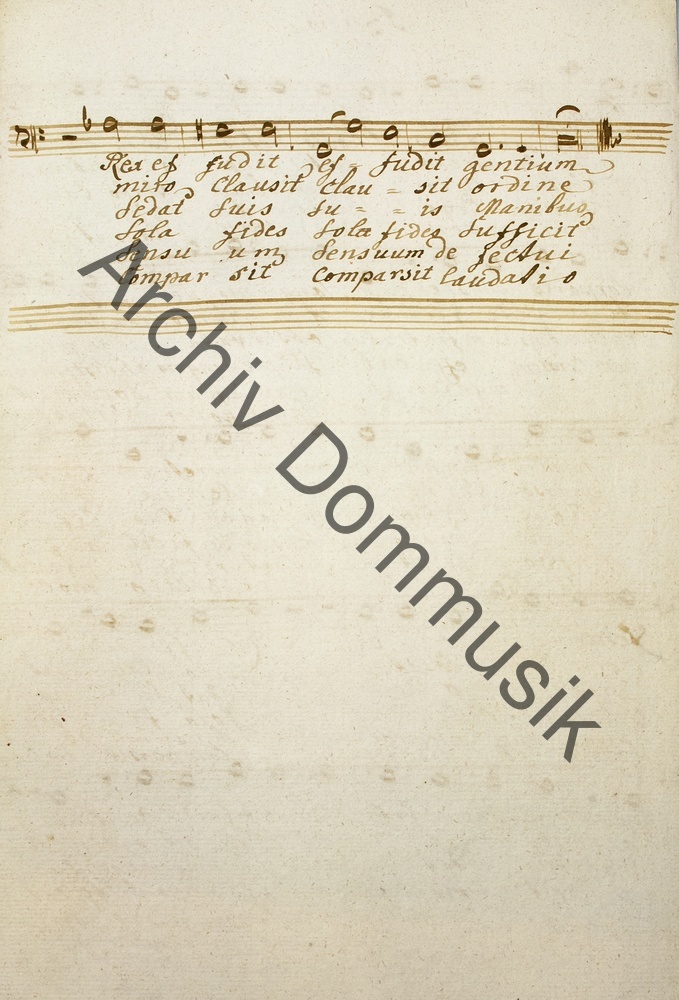 Rex ef fudit ef = fudit gentium
miro Clausit clau = sit ordine
Sedat suis su = = is Manibus
Sola fides sola fides Sufficit
Sensu um Sensuum de fectui
Compar sit Comparsit laudatio
Archiv Dommusik